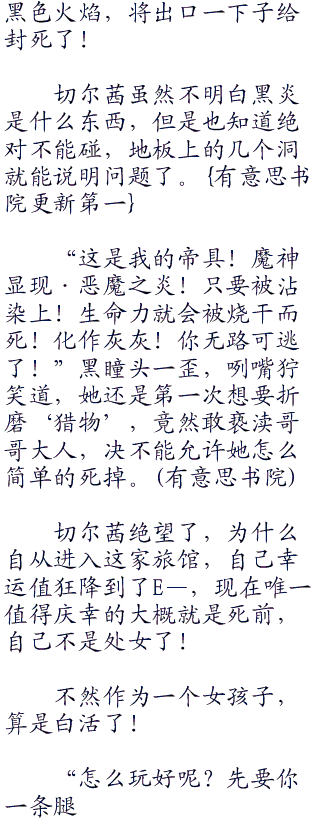 黑色火焰，将出口一下子给
封死了！
切尔茜虽然不明白黑炎
是什么东西，但是也知道绝
对不能碰，地板上的几个洞
就能说明问题了。{有意思书
院更新第一}
“这是我的帝具！魔神
显现·恶魔之炎！只要被沾
染上！生命力就会被烧干而
死！化作灰灰！你无路可逃
了！”黑瞳头一歪，咧嘴狞
笑道，她还是第一次想要折
磨‘猎物’，竟然敢亵渎哥
哥大人，决不能允许她怎么
简单的死掉。(有意思书院)
切尔茜绝望了，为什么
自从进入这家旅馆，自己幸
运值狂降到了E—，现在唯一
值得庆幸的大概就是死前，
自己不是处女了！
不然作为一个女孩子，
算是白活了！
“怎么玩好呢？先要你
一条腿